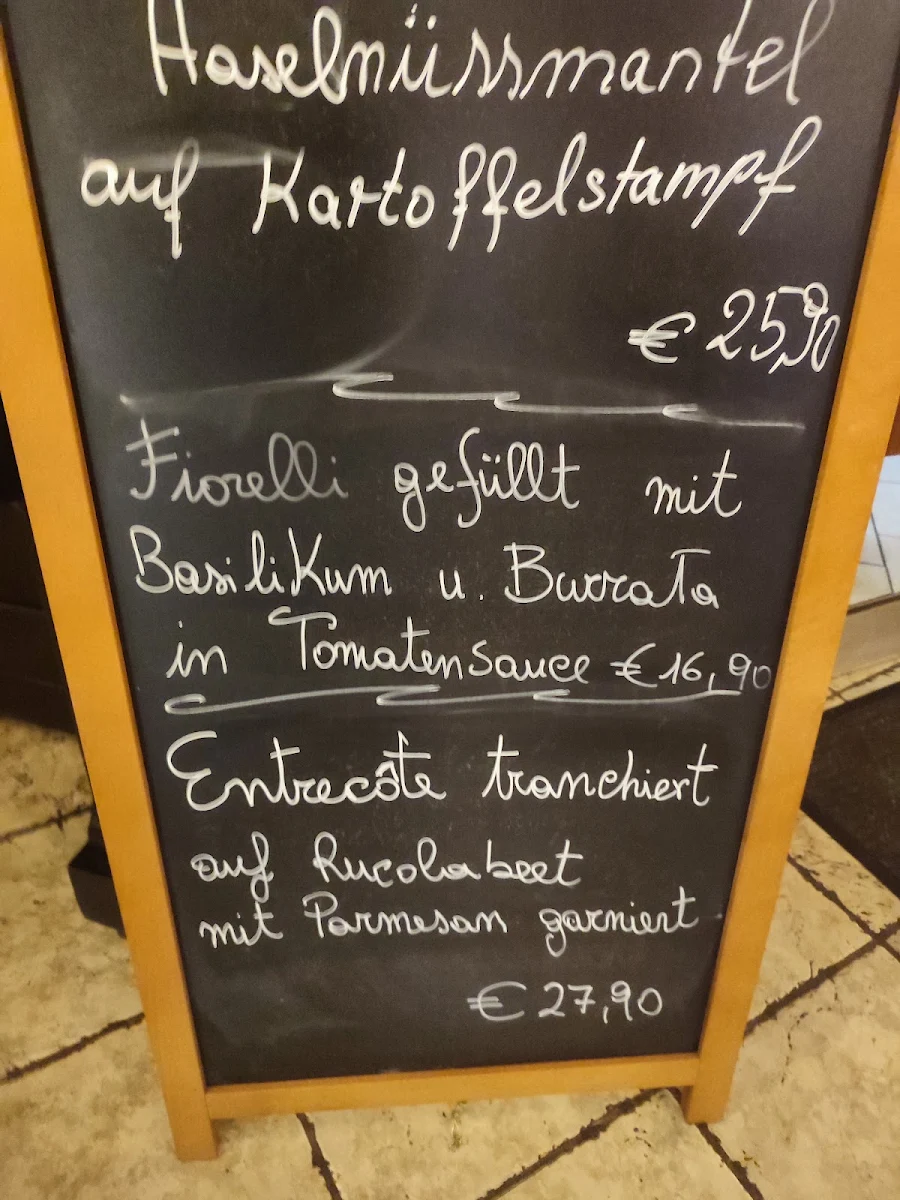 Haselnüssmantel
auf Kartoffelstampf
€ 25,90
Fiorelli gefüllt mit
Basilikum u. Burrata
in Tomatensauce € 16,90
Entrecôte tranchiert
auf Rucolabeet
mit Parmesan garniert
€ 27,90